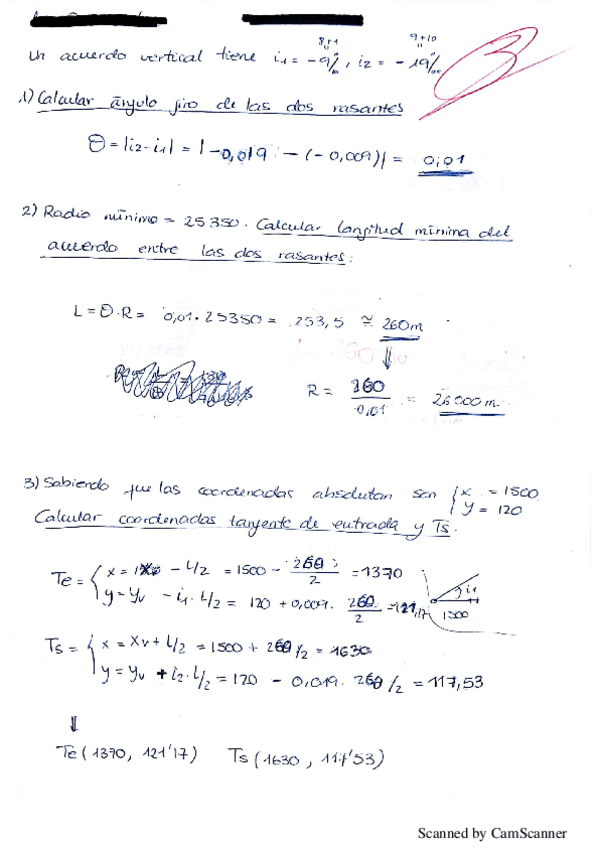 8+1
9+10
Un acuerdo vertical tiene i1 = -9‰, i2 = -19‰
1) Calcular ángulo giro de las dos rasantes
θ = |i2 - i1| = |-0,019 - (-0,009)| = 0,01
2) Radio mínimo = 25350. Calcular longitud mínima del
acuerdo entre las dos rasantes:
L = θ·R = 0,01·25350 = 253,5 ≅ 260m
R = 260/0,01 = 26000m.
3) Sabiendo que las coordenadas absolutas son { x = 1500
y = 120
Calcular coordenadas tangente de entrada y Ts.
Te = { x = - L/2 = 1500 - 260/2 = 1370
y = yv - i1·L/2 = 120 + 0,009· 260/2 = 121,17
i1
1500
Ts = { x = xv + L/2 = 1500 + 260/2 = 1630
y = yv + i2·L/2 = 120 - 0,019·260/2 = 117,53
Te (1370, 121'17) Ts (1630, 117'53)
Scanned by CamScanner